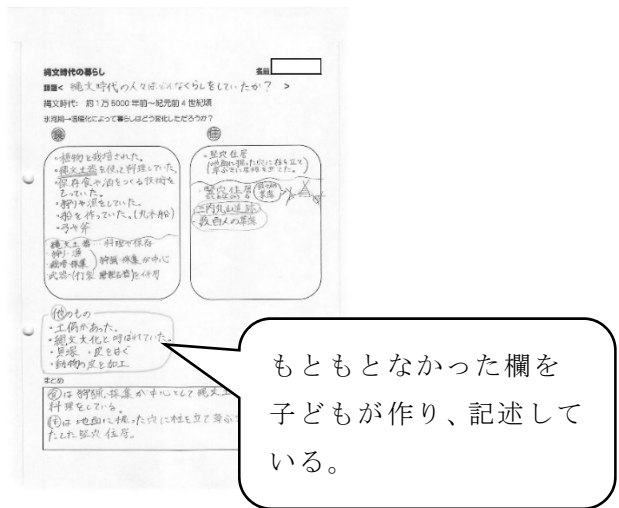 縄文時代の暮らし
名前
課題< 縄文時代の人々はどんなくらしをしていたか? >
縄文時代: 約1万5000年前~紀元前4世紀頃
氷河期→温暖化によって暮らしはどう変化しただろうか?
食
住
・植物を栽培された。
・縄文土器を使って料理していた。
・保存食や酒をつくる技術を
もっていた。
・狩りや漁をしていた。
・船を作っていた。(丸木船)
・弓や斧
縄文土器 料理や保存
狩り・漁
採集
狩猟・採集が中心
・竪穴住居
(地面に掘った穴に柱を立て
・竪穴住居
三内丸山遺跡
・数百人の集落
他のもの
・土偶があった。
・縄文文化と呼ばれていた。
・貝塚 ・皮をはぐ
・動物の皮を加工
まとめ
食は狩猟、採集が中心として縄文土
料理をしている。
住は地面に掘った穴に柱を立て
たてた竪穴住居。
もともとなかった欄を
子どもが作り、記述して
いる。